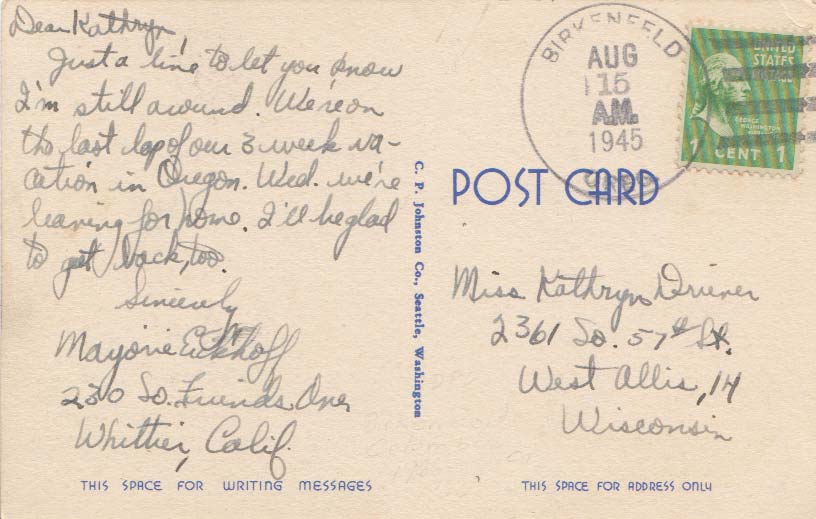 Dear Kathryn,
Just a line to let you know
I'm still around. We're on
the last lap of our 3 week va-
cation in Oregon. Wed. we're
leaving for home. I'll be glad
to get back, too.
Sincerely
Marjorie Eickhoff
230 So. Friends Ave
Whittier, Calif.
THIS SPACE FOR WRITING MESSAGES
C. P. Johnston Co., Seattle, Washington
BIRKENFELD
AUG
15
A.M.
1945
UNITED
STATES
POSTAGE
GEORGE
WASHINGTON
1 CENT 1
POST CARD
Miss Kathryn Driever
2361 So. 57th St.
West Allis, 14
Wisconsin
THIS SPACE FOR ADDRESS ONLY